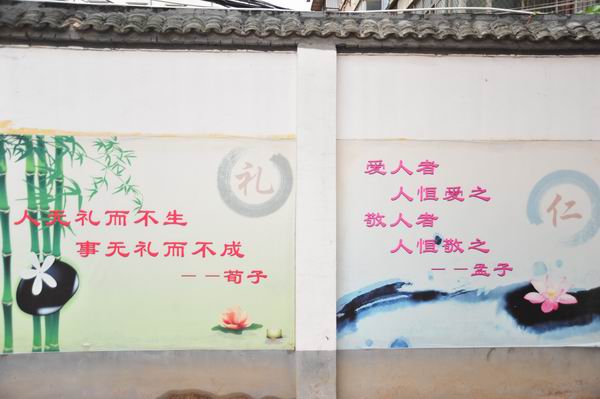 礼
人无礼而不生
事无礼而不成
－－荀子
仁
爱人者
人恒爱之
敬人者
人恒敬之
－－孟子